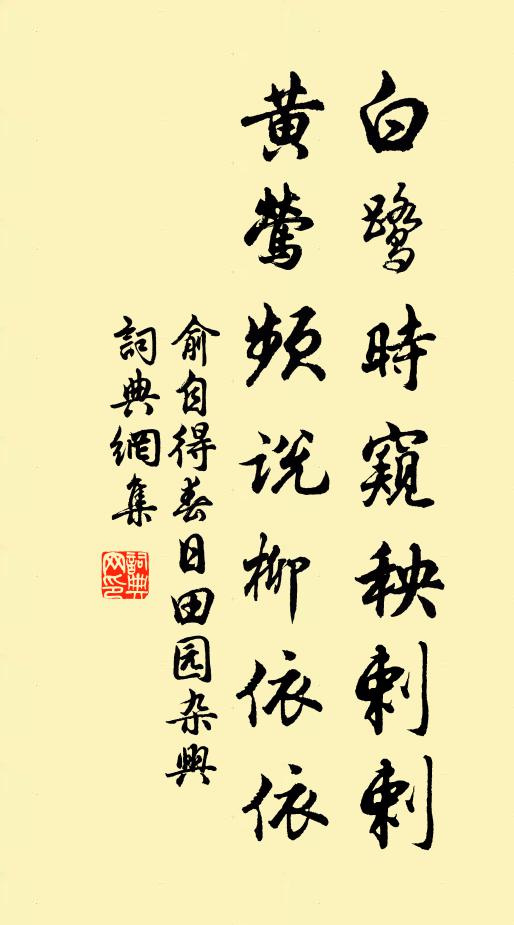 白鹭時窺秧刺刺
黄莺頻说柳依依
俞自得春日田园杂興
詞典網集
詞典网印